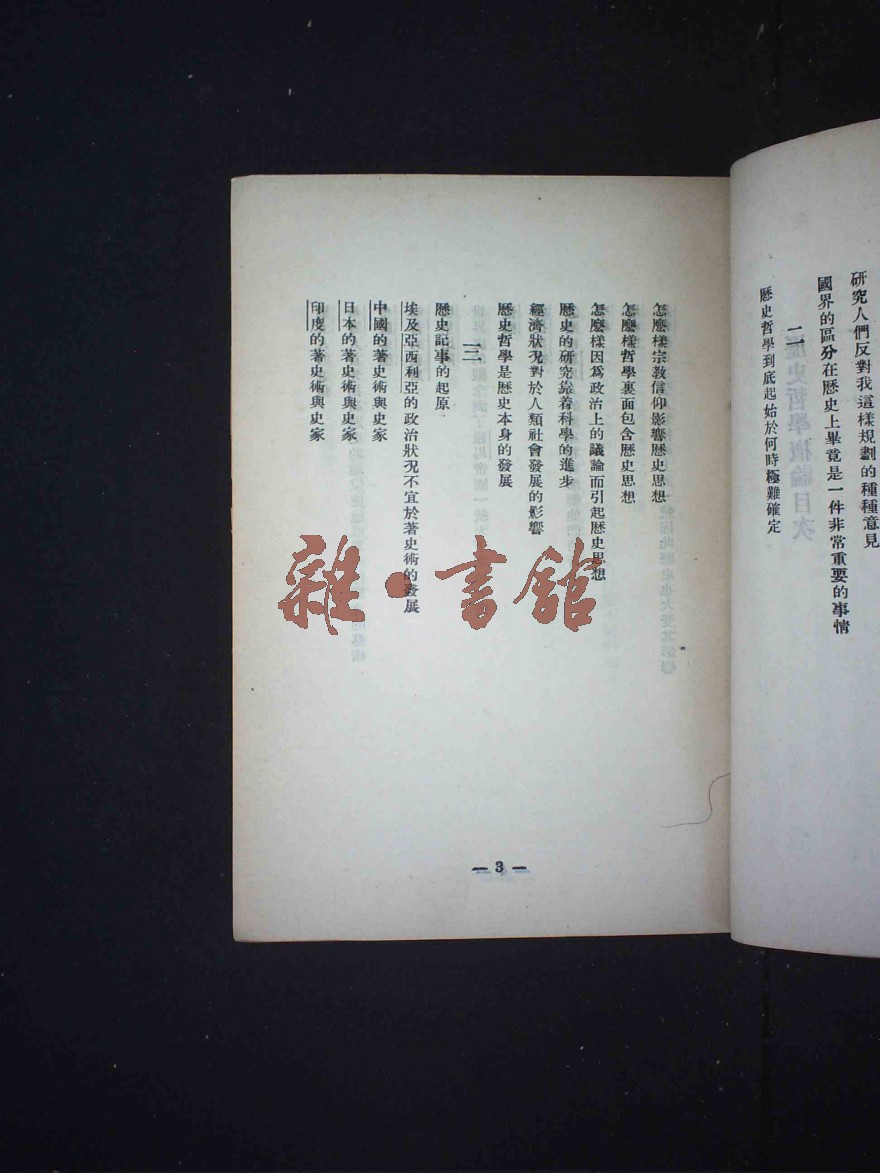 研究人們反對我這樣規劃的種種意見
國界的區分在歷史上畢竟是一件非常重要的事情
二
歷史哲學到底起始於何時極難確定
怎麼樣宗教信仰影響歷史思想
怎麼樣哲學裏面包含歷史思想
怎麼樣因爲政治上的議論而引起歷史思想
歷史的研究靠着科學的進步
經濟狀況對於人類社會發展的影響
歷史哲學是歷史本身的發展
三
歷史記事的起原
埃及亞西利亞的政治狀況不宜於著史術的發展
中國的著史術與史家
日本的著史術與史家
印度的著史術與史家
— 3 —
雜·書館